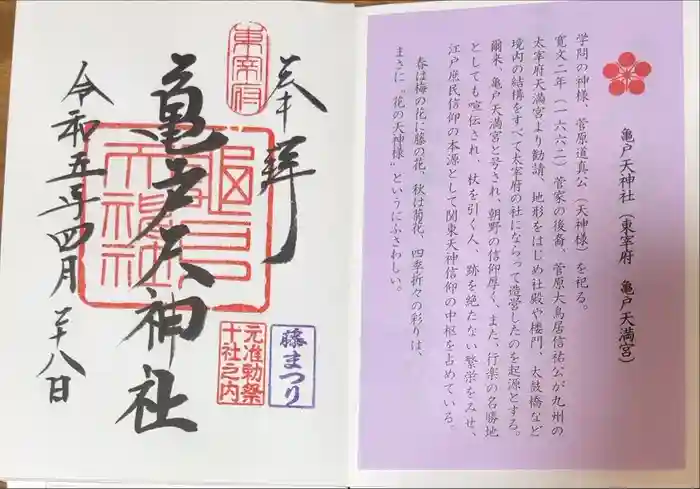 亀戸天神社(東宰府 亀戸天満宮)
学問の神様、菅原道真公(天神様)を祀る。
寛文二年(一六六二)菅家の後裔、菅原大鳥居信祐公が九州の
太宰府天満宮より勧請、地形をはじめ社殿や楼門、太鼓橋など
境内の結構をすべて太宰府の社にならって造営したのを起源とする。
爾来、亀戸天満宮と号され、朝野の信仰厚く、また、行楽の名勝地
としても喧伝され、杖を引く人、跡を絶たない繁栄をみせ、
江戸庶民信仰の本源として関東天神信仰の中枢を占めている。
春は梅の花に藤の花、秋は菊花、四季折々の彩りは、
まさに"花の天神様"というにふさわしい。
奉拝
東宰府
亀戸天神社
亀戸
天神社
藤まつり
元准勅祭
十社之内
令和五年四月二十八日